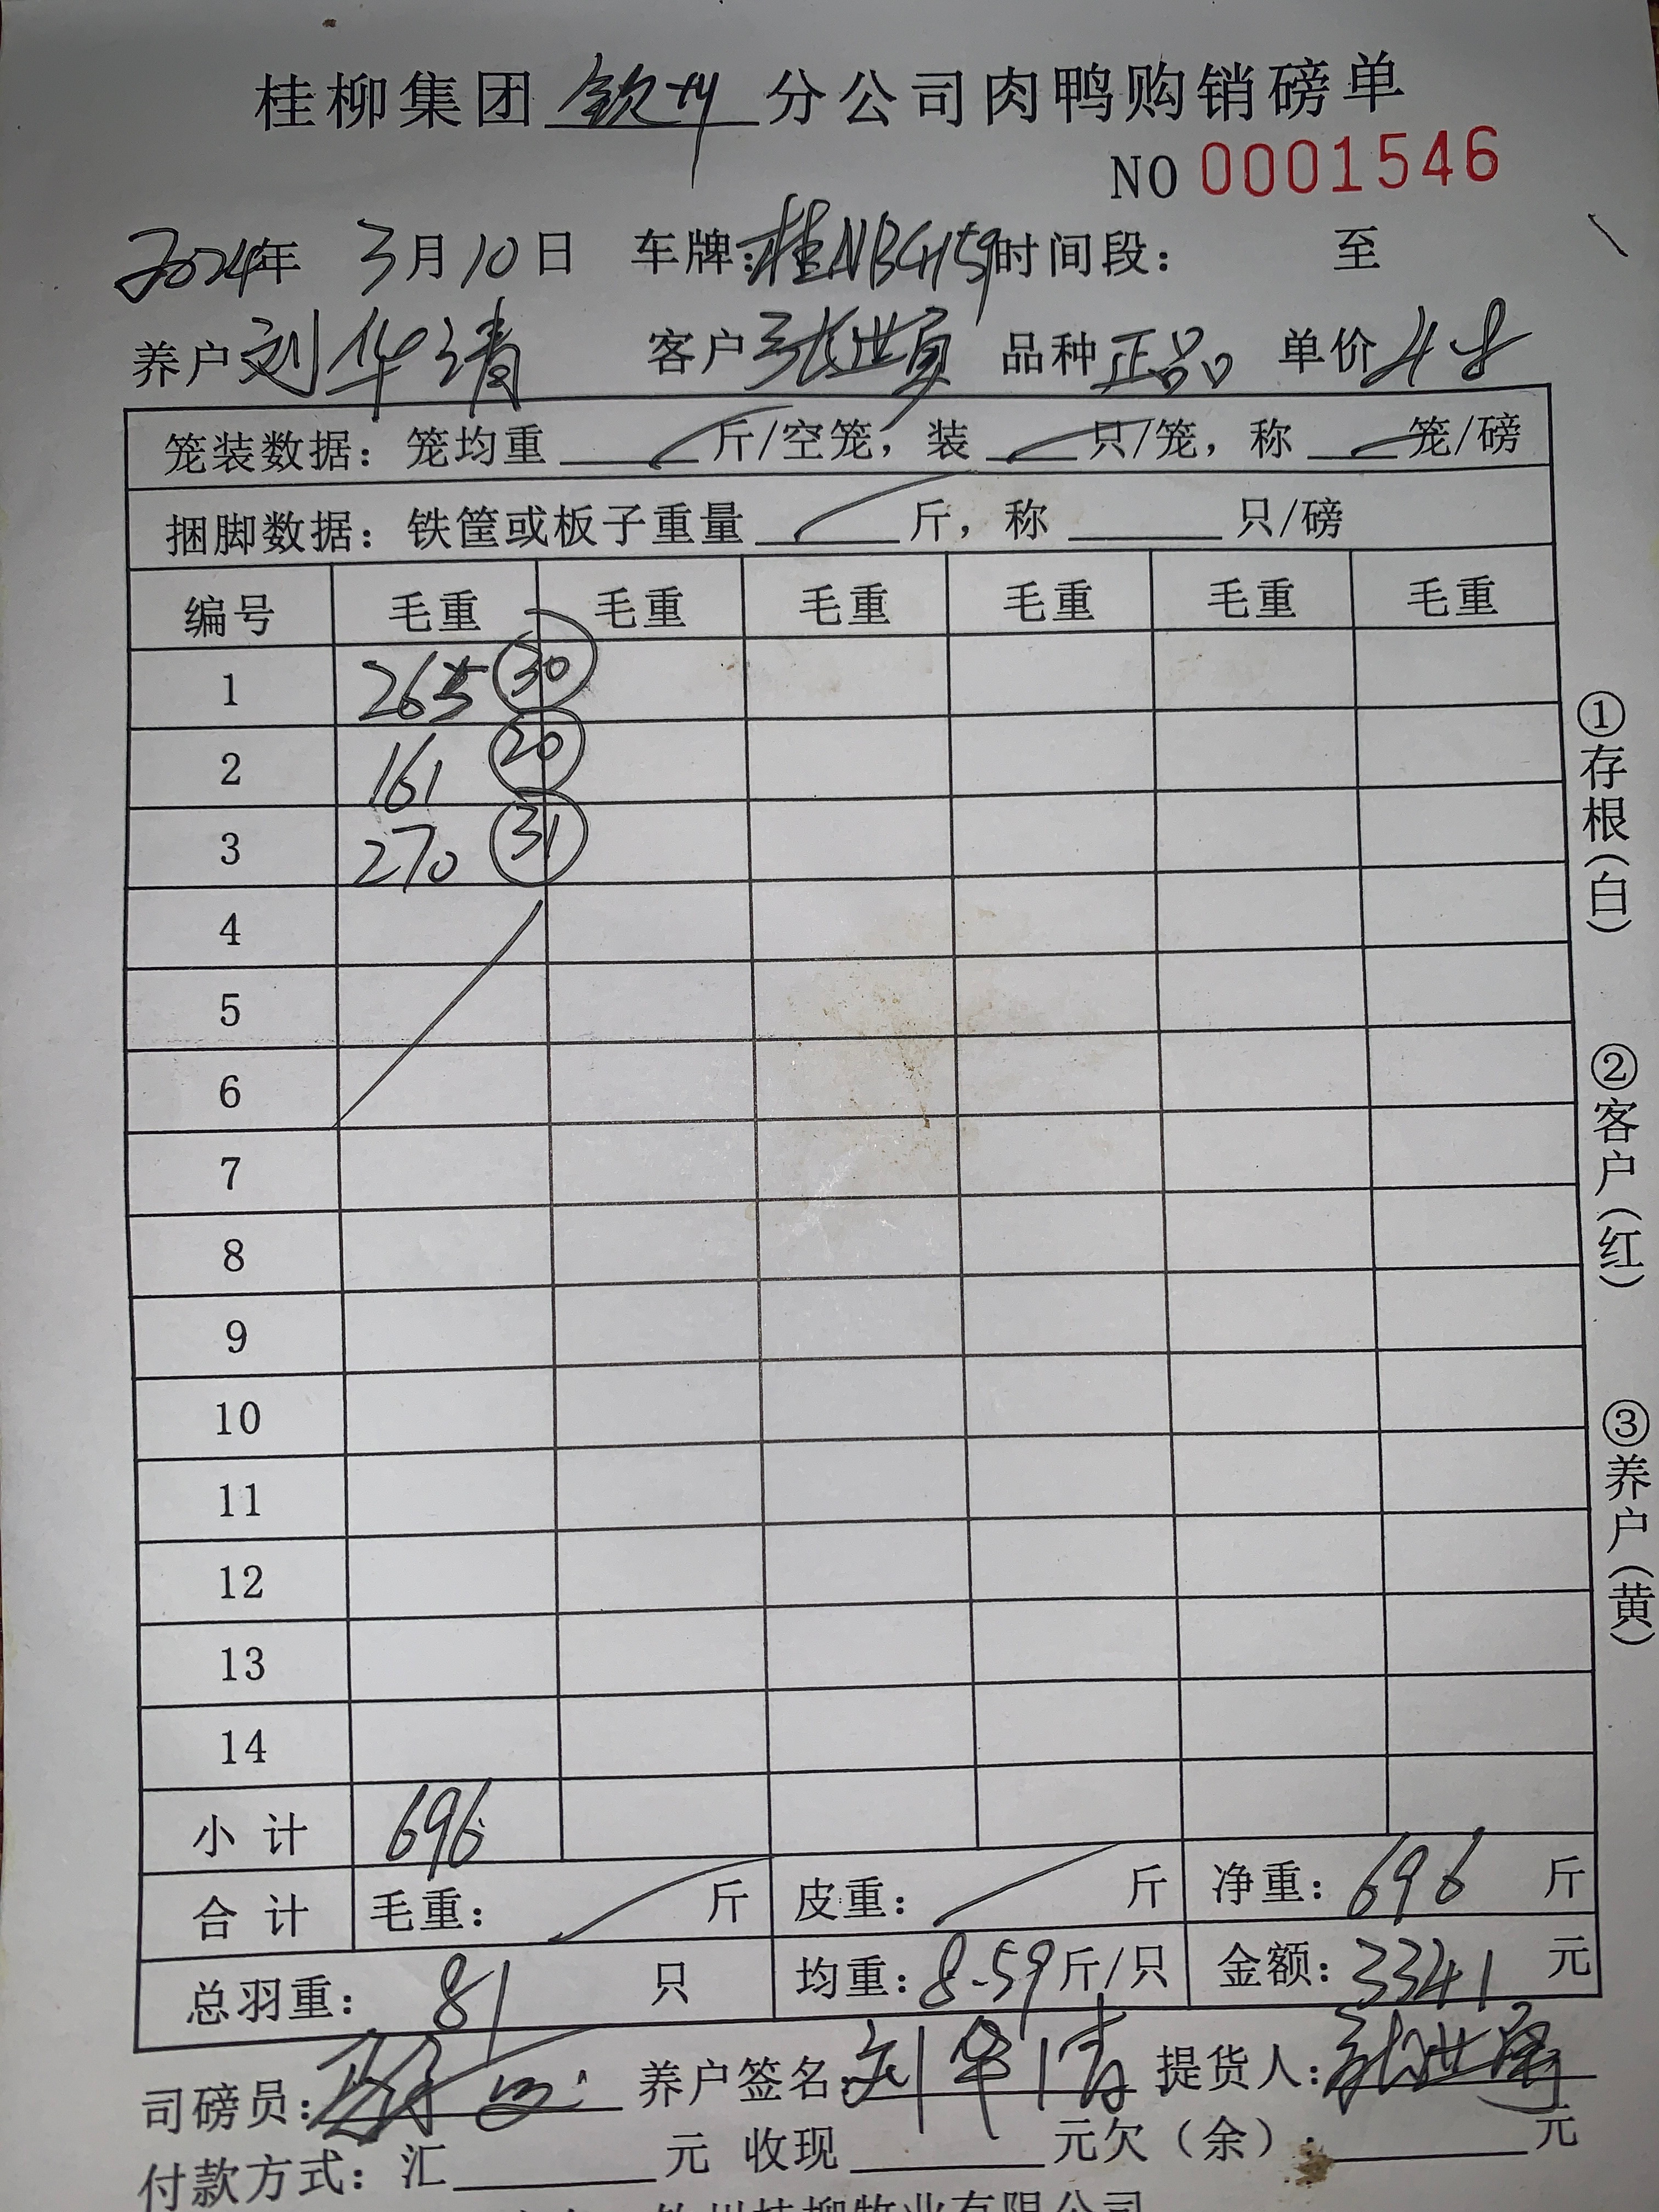 桂柳集团 钦州 分公司肉鸭购销磅单
NO 0001546
2024年 3月10日 车牌:桂NBG159时间段: 至
养户 刘华清 客户 张世 品种 正品 单价 4.8
笼装数据: 笼均重 斤/空笼, 装 只/笼, 称 笼/磅
捆脚数据: 铁筐或板子重量 斤, 称 只/磅
编号 毛重 毛重 毛重 毛重 毛重 毛重
1 265 30
2 161 20
3 270 31
4
5
6
7
8
9
10
11
12
13
14
小计 696
合计 毛重: 斤 皮重: 斤 净重: 696 斤
总羽重: 81 只 均重: 8.59 斤/只 金额: 3341 元
司磅员: 养户签名: 刘华清 提货人: 张世
付款方式: 汇 元 收现 元欠(余): 元
钦州桂柳牧业有限公司
①存根(白)
②客户(红)
③养户(黄)